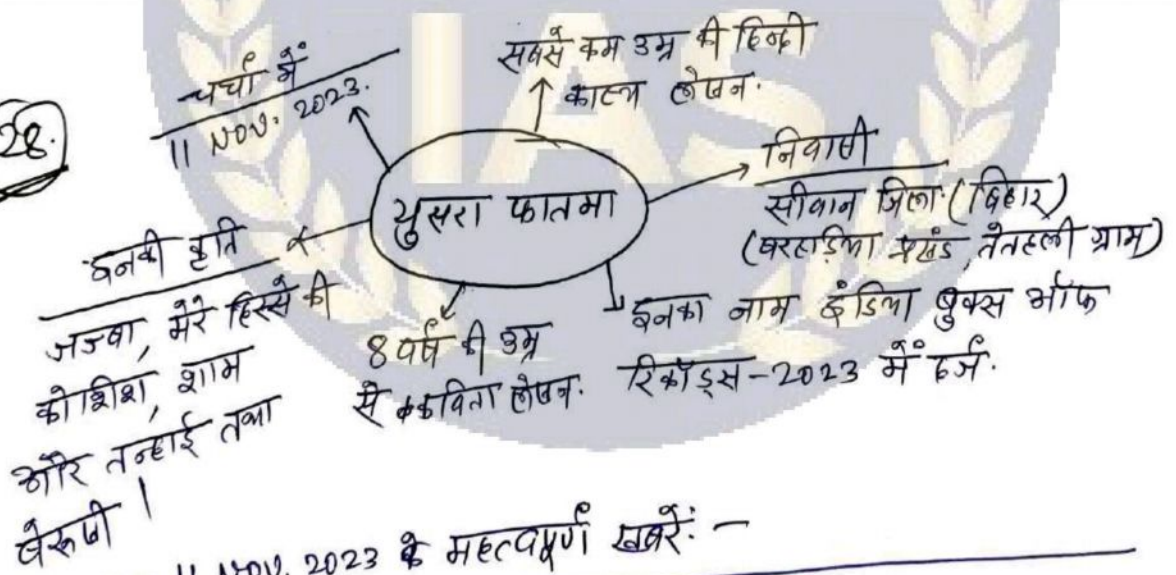 28.
चर्चा में
11 NOV. 2023.
सबसे कम उम्र की हिन्दी
काव्य लेखन.
युसरा फातमा
निवासी
सीवान जिला (बिहार)
(बरहड़िया प्रखंड, तेतहली ग्राम)
इनका नाम इंडिया बुक्स ऑफ
रिकॉर्ड्स-2023 में दर्ज.
8 वर्ष की उम्र
से कविता लेखन.
इनकी कृति
जज्बा, मेरे हिस्से की
कोशिश, शाम
और तन्हाई तथा
बेरूखी।
11 NOV. 2023 के महत्वपूर्ण खबरें: -
IAS